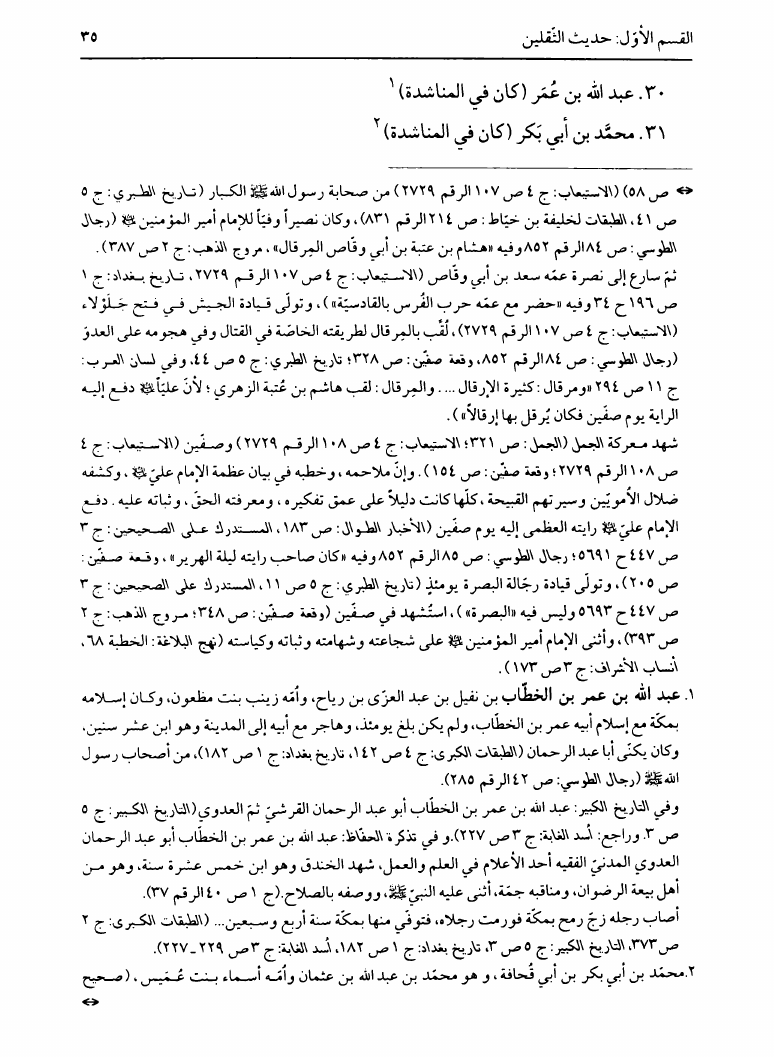 القسم الأوّل: حديث الثّقلين ٣٥
٣٠. عبد الله بن عُمَر (كان في المناشدة)١
٣١. محمّد بن أبي بَكر (كان في المناشدة)٢
⇔ ص ٥٨) (الاستيعاب: ج ٤ ص ١٠٧ الرقم ٢٧٢٩) من صحابة رسول الله ﷺ الكبار (تاريخ الطبري: ج ٥
ص ٤١، الطبقات لخليفة بن خيّاط: ص ٢١٤ الرقم ٨٣١)، وكان نصيراً وفيّاً للإمام أمير المؤمنين ﷺ (رجال
الطوسي: ص ٨٤ الرقم ٨٥٢ وفيه «هشام بن عتبة بن أبي وقّاص المِرقال»، مروج الذهب: ج ٢ ص ٣٨٧).
ثمّ سارع إلى نصرة عمّه سعد بن أبي وقّاص (الاستيعاب: ج ٤ ص ١٠٧ الرقم ٢٧٢٩، تاريخ بغداد: ج ١
ص ١٩٦ ح ٣٤ وفيه «حضر مع عمّه حرب الفُرس بالقادسيّة»)، وتولّى قيادة الجيش في فتح جَلَولاء
(الاستيعاب: ج ٤ ص ١٠٧ الرقم ٢٧٢٩)، لُقِّب بالمِرقال لطريقته الخاصّة في القتال وفي هجومه على العدوّ
(رجال الطوسي: ص ٨٤ الرقم ٨٥٢، وقعة صفّين: ص ٣٢٨؛ تاريخ الطبري: ج ٥ ص ٤٤، وفي لسان العرب:
ج ١١ ص ٢٩٤ «ومرقال: كثيرة الإرقال .... والمِرقال: لقب هاشم بن عُتبة الزهري؛ لأنّ عليّاً ﷺ دفع إليه
الراية يوم صفّين فكان يُرقل بها إرقالاً»).
شهد معركة الجمل (الجمل: ص ٣٢١؛ الاستيعاب: ج ٤ ص ١٠٨ الرقم ٢٧٢٩) وصفّين (الاستيعاب: ج ٤
ص ١٠٨ الرقم ٢٧٢٩؛ وقعة صفّين: ص ١٥٤). وإنّ ملاحمه، وخطبه في بيان عظمة الإمام عليّ ﷺ، وكشفه
ضلال الأمويّين وسيرتهم القبيحة، كلّها كانت دليلاً على عمق تفكيره، ومعرفته الحقّ، وثباته عليه. دفع
الإمام عليّ ﷺ رايته العظمى إليه يوم صفّين (الأخبار الطوال: ص ١٨٣، المستدرك على الصحيحين: ج ٣
ص ٤٤٧ ح ٥٦٩١؛ رجال الطوسي: ص ٨٥ الرقم ٨٥٢ وفيه «كان صاحب رايته ليلة الهرير»، وقعة صفّين:
ص ٢٠٥)، وتولّى قيادة رجّالة البصرة يومئذٍ (تاريخ الطبري: ج ٥ ص ١١، المستدرك على الصحيحين: ج ٣
ص ٤٤٧ ح ٥٦٩٣ وليس فيه «البصرة»)، استُشهد في صفّين (وقعة صفّين: ص ٣٤٨؛ مروج الذهب: ج ٢
ص ٣٩٣)، وأثنى الإمام أمير المؤمنين ﷺ على شجاعته وشهامته وثباته وكياسته (نهج البلاغة: الخطبة ٦٨،
أنساب الأشراف: ج ٣ ص ١٧٣).
١. عبد الله بن عمر بن الخطّاب بن نفيل بن عبد العزّى بن رياح، وأمّه زينب بنت مظعون، وكان إسلامه
بمكّة مع إسلام أبيه عمر بن الخطّاب، ولم يكن بلغ يومئذ، وهاجر مع أبيه إلى المدينة وهو ابن عشر سنين،
وكان يكنّى أبا عبد الرحمان (الطبقات الكبرى: ج ٤ ص ١٤٢، تاريخ بغداد: ج ١ ص ١٨٢)، من أصحاب رسول
الله ﷺ (رجال الطوسي: ص ٤٢ الرقم ٢٨٥).
وفي التاريخ الكبير: عبد الله بن عمر بن الخطّاب أبو عبد الرحمان القرشيّ ثمّ العدوي (التاريخ الكبير: ج ٥
ص ٣. وراجع: أُسد الغابة: ج ٣ ص ٢٢٧). و في تذكرة الحفّاظ: عبد الله بن عمر بن الخطّاب أبو عبد الرحمان
العدوي المدنيّ الفقيه أحد الأعلام في العلم والعمل، شهد الخندق وهو ابن خمس عشرة سنة، وهو من
أهل بيعة الرضوان، ومناقبه جمّة، أثنى عليه النبيّ ﷺ، ووصفه بالصلاح. (ج ١ ص ٤٠ الرقم ٣٧).
أصاب رجله زجّ رمح بمكّة فورمت رجلاه، فتوفّي منها بمكّة سنة أربع وسبعين... (الطبقات الكبرى: ج ٢
ص ٣٧٣، التاريخ الكبير: ج ٥ ص ٣، تاريخ بغداد: ج ١ ص ١٨٢، أُسد الغابة: ج ٣ ص ٢٢٩ ـ ٢٢٧).
٢. محمّد بن أبي بكر بن أبي قُحافة، و هو محمّد بن عبد الله بن عثمان وأمّه أسماء بنت عُمَيس، (صحيح
⇔